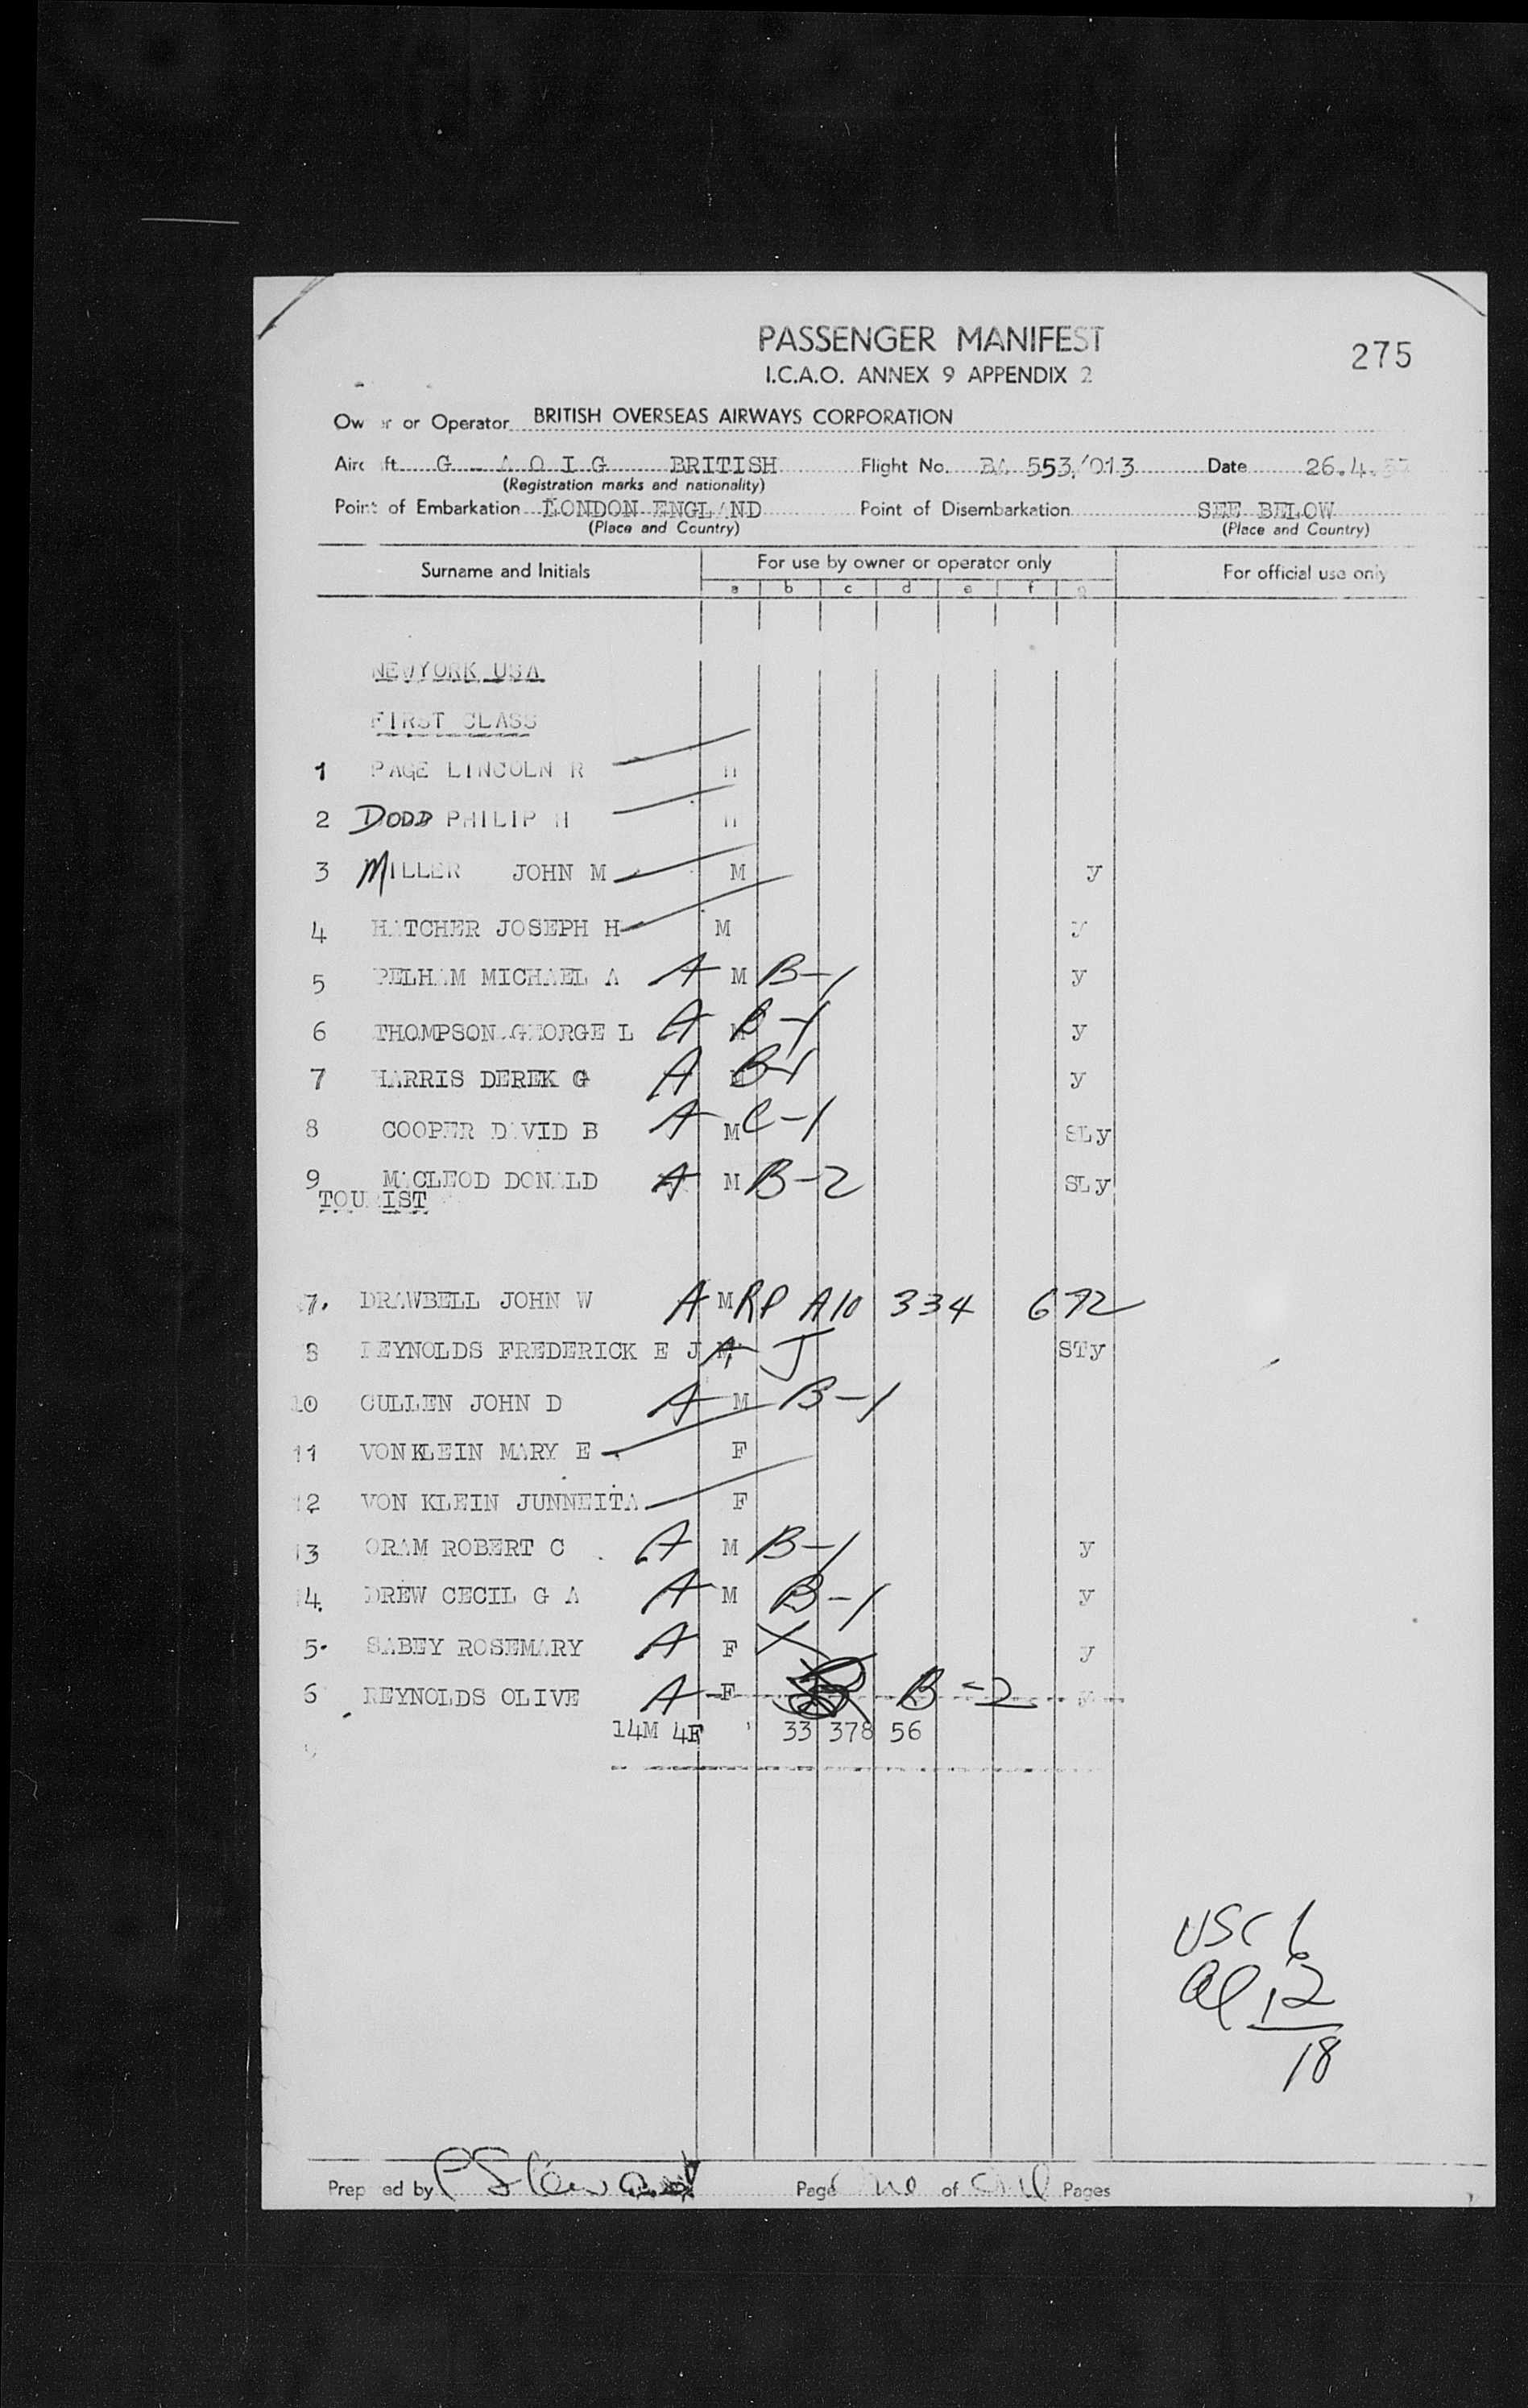 PASSENGER MANIFEST
275
I.C.A.O. ANNEX 9 APPENDIX 2
Ow er or Operator BRITISH OVERSEAS AIRWAYS CORPORATION
Airc ft G - A O I G BRITISH Flight No. BA 553/013 Date 26.4.57
(Registration marks and nationality)
Point of Embarkation LONDON ENGLAND Point of Disembarkation SEE BELOW
(Place and Country) (Place and Country)
Surname and Initials For use by owner or operator only For official use only
a b c d e f g
NEWYORK USA
FIRST CLASS
1 PAGE LINCOLN R M
2 DODD PHILIP H M
3 MILLER JOHN M M y
4 HATCHER JOSEPH H M y
5 PELHAM MICHAEL A A M B-1 y
6 THOMPSON GEORGE L A M B-1 y
7 HARRIS DEREK G A M B-1 y
8 COOPER DAVID B A M C-1 SLy
9 MACLEOD DONALD A M B-2 SLy
TOURIST
7. DRAWBELL JOHN W A M RP A10 334 672
8 REYNOLDS FREDERICK E J M A J STy
10 CULLEN JOHN D A M B-1
11 VONKLEIN MARY E F
12 VON KLEIN JUNNEITA F
13 ORAM ROBERT C A M B-1 y
14. DREW CECIL G A A M B-1 y
5. SABEY ROSEMARY A F y
6 REYNOLDS OLIVE A F B-2
14M 4F 33 378 56
USC 6
Al 12
18
Prep ed by P Stewart Page One of One Pages